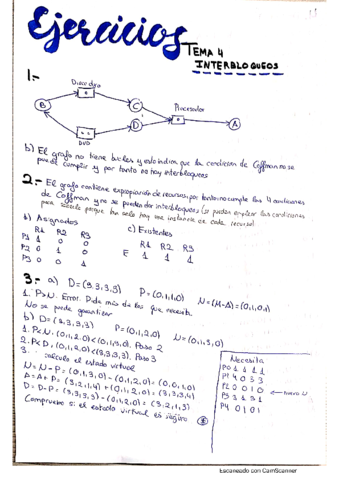 Ejercicios
TEMA 4
INTERBLOQUEOS
1.-
Disco duro
B
C
Procesador
D
A
DVD
b) El grafo no tiene bucles y esto indica que la condicion de Coffman no se
puede cumplir y por tanto no hay interbloqueos
2.- El grafo contiene expropiación de recursos, por tanto no cumple las 4 condiciones
de Coffman y no se pueden dar interbloqueos (se pueden aplicar las condiciones
porque tan solo hay una instancia en cada recurso)
b) Asignados
R1 R2 R3
P1 1 0 0
P2 0 1 0
P3 0 0 1
c) Existentes
R1 R2 R3
E 1 1 1
3.- a) D=(3,3,3,3) P=(0,1,1,0) N=(M-A)=(0,1,0,1)
1. P>N. Error. Pide más de los que necesita.
No se puede garantizar
b) D=(3,3,3,3) P=(0,1,2,0) N=(0,1,3,0)
1. P<N. (0,1,2,0)<(0,1,3,0). Paso 2
2. P<D, (0,1,2,0)<(3,3,3,3). Paso 3
3. Calculo el estado virtual
N=N-P=(0,1,3,0)-(0,1,2,0)=(0,0,1,0)
A=A+P=(3,2,1,4)+(0,1,2,0)=(3,3,3,4)
D=D-P=(3,3,3,3)-(0,1,2,0)=(3,2,1,3)
Compruebo si el estado virtual es seguro
Necesita
P0 1 1 1 1
P1 4 0 3 3
P2 0 0 1 0 ← nuevo N
P3 3 1 3 1
P4 0 1 0 1
Escaneado con CamScanner